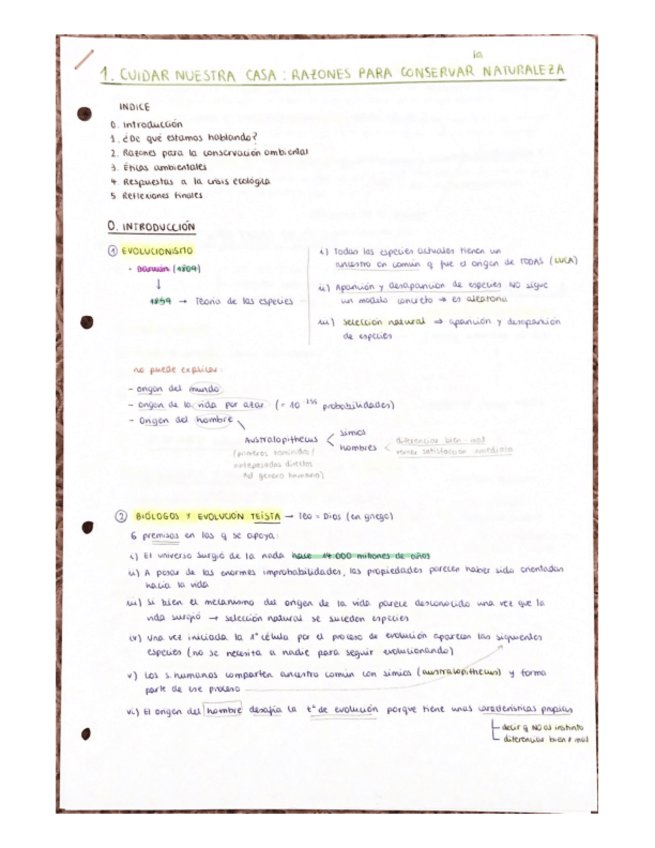 1. CUIDAR NUESTRA CASA: RAZONES PARA CONSERVAR la NATURALEZA
INDICE
0. Introducción
1. ¿De qué estamos hablando?
2. Razones para la conservación ambiental
3. Éticas ambientales
4. Respuestas a la crisis ecológica
5 Reflexiones finales
0. INTRODUCCIÓN
① EVOLUCIONISMO
- Darwin (1809)
↓
1859 → Teoría de las especies
i) Todas las especies actuales tienen un
ancestro en común q fue el origen de TODAS (LUCA)
ii) Aparición y desaparición de especies NO sigue
un modelo concreto → es aleatoria
iii) selección natural ⇒ aparición y desaparición
de especies
no puede explicar:
- origen del mundo
- origen de la vida por azar (= 10 probabilidades)
- Origen del hombre
Australopithecus < simios
hombres < diferencias bien-mal
(primeros homínidos/
antepasados directos
del género humano)
satisfacción inmediata
② BIÓLOGOS Y EVOLUCIÓN TEÍSTA → Teo = Dios (en griego)
6 premisas en las q se apoya:
i) El universo surgió de la nada hace 14 000 millones de años
ii) A pesar de las enormes improbabilidades, las propiedades parecen haber sido orientadas
hacia la vida
iii) Si bien el mecanismo del origen de la vida parece desconocido una vez que la
vida surgió → selección natural se suceden especies
iv) Una vez iniciada la 1ª célula por el proceso de evolución aparecen las siguientes
especies (no se necesita a nadie para seguir evolucionando)
v) Los s. humanos comparten ancestro común con simios (australopithecus) y forma
parte de ese proceso
vi) El origen del hombre desafía la tª de evolución porque tiene unas características propias
decir q NO al instinto
diferencias bien ≠ mal